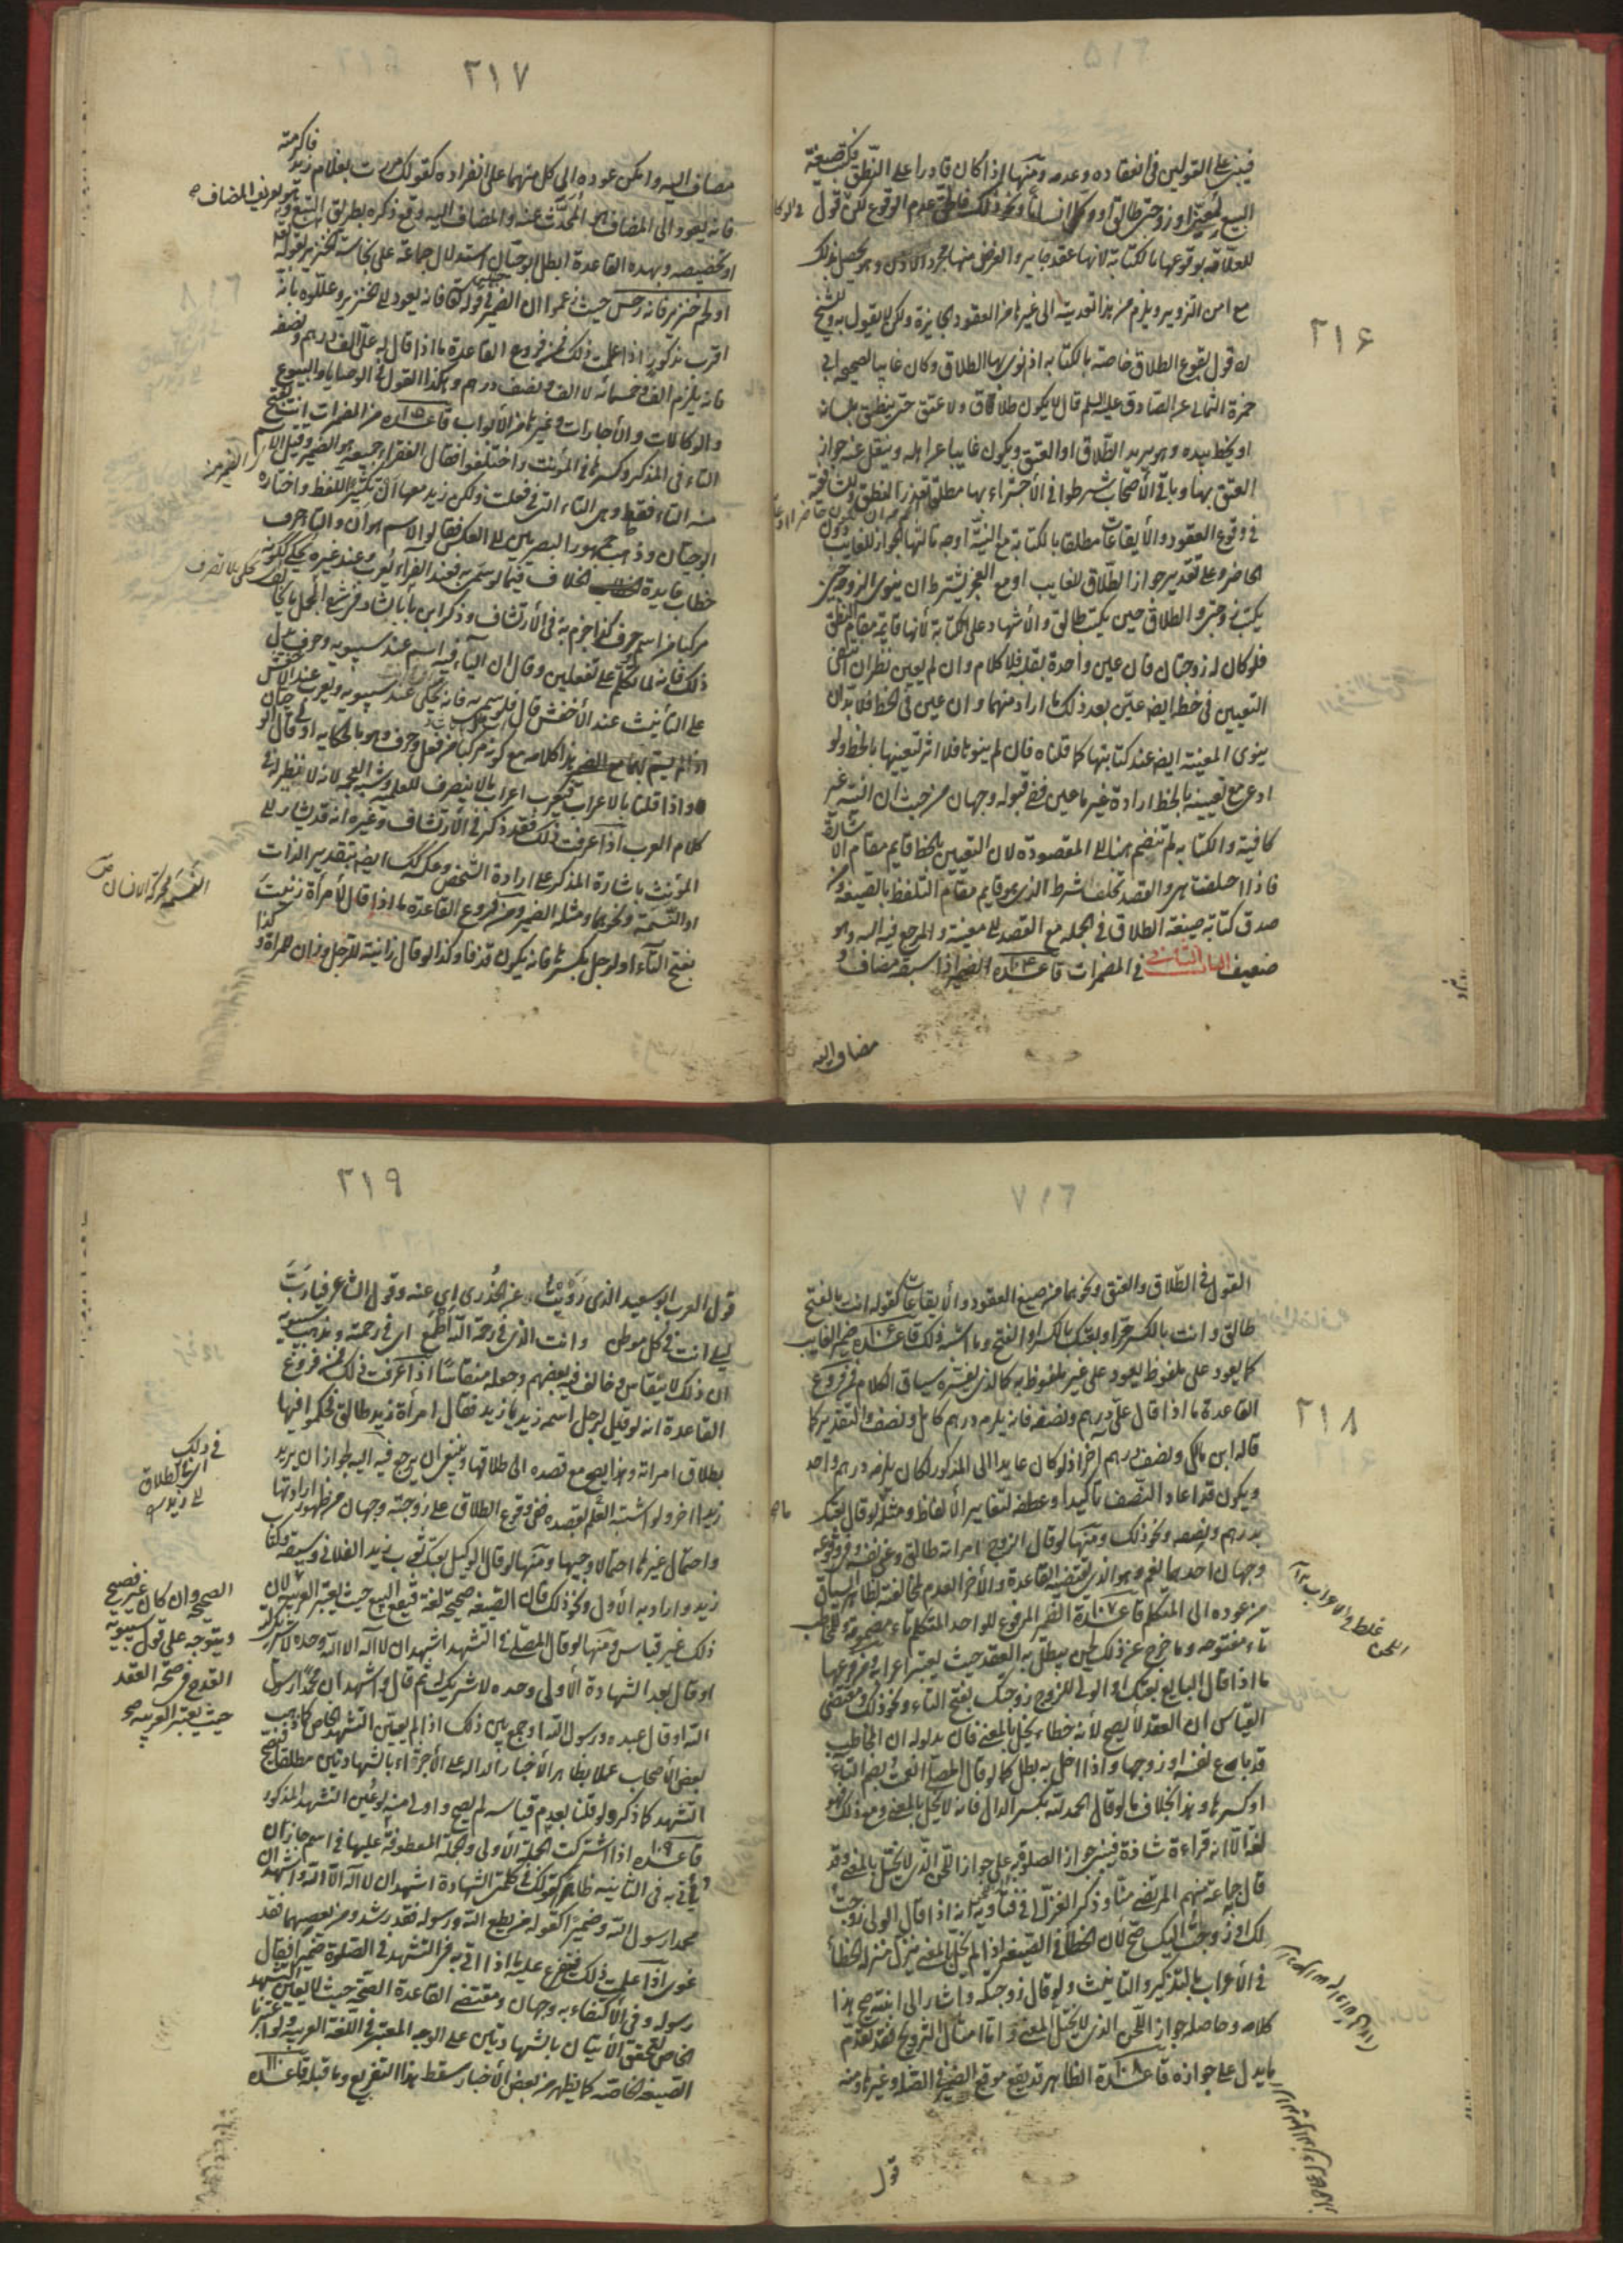 ٢١۶
فيبنى على القولين في انعقاده وعدمه ومنها اذا كان قادرا على النطق فكتب صيغة
البيع او زوجتي طالق او وكل انسانا ونحو ذلك عدم الوقوع لكن قول
للعلامة بوقوعها بالكتابة لانها عقد جايز والغرض منها مجرد الاذن وهو يحصل بذلك
مع امن التزوير ويلزم من هذا تعديته الى غيرها من العقود الجايزة ولكن لا يقول به وللشيخ
ره قول بوقوع الطلاق خاصة بالكتابة اذا نوى بها الطلاق وكان غايبا لصحيحة ابي
حمزة الثمالي عن الصادق عليه السلم قال لا يكون طلاق ولا عتق حتى ينطق بلسانه
او يخط بيده وهو يريد الطلاق او العتق ويكون غايبا عن اهله وينقل عنه جواز
العتق بها وباقي الأصحاب شرطوا في الأجتزاء بها مطلق تعذر النطق وللشافعية
في وقوع العقود والأيقاعات مطلقا بالكتابة مع النية اوجه ثالثها الجواز للغايب دون
الحاضر وعلى تقدير جواز الطلاق للغايب او مع العجز يشترط ان ينوى الزوج حين
يكتب زوجتي والطلاق حين يكتب طالق والأشهاد على الكتابة لأنها قائمة مقام النطق
فلو كان له زوجتان فان عين واحدة بقلبه فلا كلام وان لم يعين نظر ان انتفى
التعيين في خطه ايضا عين بعد ذلك ما اراد منهما وان عين في الخط فلا بد ان
ينوى المعينة ايضا عند كتابتها كما قلناه فان لم ينوها فلا اثر لتعيينها بالخط ولو
ادعى مع تعيينه بالخط ارادة غير ما عين ففي قبوله وجهان من حيث ان النية غير
كافية والكتابة لم تنضم هنا الى المقصودة لان التعيين بالخط قايم مقام الأشارة
فاذا اختلفت هي والقصد تخلف شرط الذي هو قايم مقام التلفظ بالصيغة ومن
صدق كتابة صيغة الطلاق في الجملة مع القصد الى معينة والمرجع فيه اليه وهو
ضعيف الباب الثاني في المضمرات قاعدة ١٠۴ الضمير اذا سبقه مضاف و
مضاف اليه
٢١٧
مضاف اليه وامكن عوده الى كل منهما على انفراده كقولك مررت بغلام زيد فاكرمته
فانه يعود الى المضاف لأنه المحدث عنه والمضاف اليه وقع ذكره بطريق التبع وهو تعريف المضاف
او تخصيصه وبهذه القاعدة ابطل ابو حيان استدلال جماعة على نجاسة الخنزير بقوله تع
او لحم خنزير فانه رجس حيث زعموا ان الضمير في قوله فانه يعود الى الخنزير وعللوه بأنه
اقرب مذكور اذا علمت ذلك فمن فروع القاعدة ما اذا قال له علي الف درهم ونصفه
فانه يلزم الف وخمسمائة لا الف ونصف درهم وهكذا القول في الوصايا والبيوع
والوكالات والأجارات وغيرها من الأبواب قاعدة ١٠٥ من المضمرات انت بفتح
التاء في المذكر وكسرها في المؤنث واختلفوا فقال الفراء جميعه هو الضمير وقيل الاسم
منه التاء فقط وهي التاء التي في فعلت ولكن زيد معها ان تكثيرا للفظ واختاره
ابو حيان وذهب جمهور البصريين الى العكس فقالوا الاسم هو ان والتاء حرف
خطاب فايدة الخلاف فيما لو سمي به فعند الفراء يعرب وعند غيره يحكى لكونه
مركبا من اسم وحرف كذا جزم به في الأرتشاف وذكر ابن بابشاد في شرح الجمل ما يخالف
ذلك فانه لما تكلم على تفعلين وقال ان الياء فيه اسم عند سيبويه وحرف يدل
على التأنيث عند الأخفش قال فلو سمي به فانه يحكى عند سيبويه ويعرب عند الأخفش
هذا كلامه مع كونه مركبا من فعل وحرف
واذا قلنا بالاعراب فيعرب اعراب ما لا ينصرف للعلمية وشبه العجمة لانه لا نظير له في
كلام العرب اذا عرفت ذلك فقد ذكر في الأرتشاف وغيره انه قد يشار الى
المؤنث باشارة المذكر على ارادة الشخص وعكس ذلك ايضا بتقدير الذات
او النسمة ونحوها ومثله الضمير ومن فروع القاعدة ما اذا قال لأمرأة زنيت
بفتح التاء او لرجل بكسرها فانه يكون قذفا وكذا لو قال زانية للرجل وزان للمرأة و كذا
النسمة محركة الانسان ص
٢١٨
القول في الطلاق والعتق ونحوهما من صيغ العقود والأيقاعات كقوله انت بالفتح
طالق وانت بالكسر حر او بعتك بالكسر او الفتح وما اشبه ذلك قاعدة ١٠۶ ضمير الغايب
كما يعود على ملفوظ يعود على غير ملفوظ به كالذي يفسره سياق الكلام فمن فروع
القاعدة ما اذا قال علي درهم ونصفه فانه يلزم درهم كامل ونصف والتقدير كما
قاله ابن مالك ونصف درهم اخر اذ لو كان عايدا الى المذكور لكان يلزمه درهم واحد
ويكون قد اعاد النصف تأكيدا وعطفه لتغاير الألفاظ ومثله لو قال بعتك
بدرهم ونصفه ونحو ذلك ومنها لو قال الزوج امراته طالق وعنى نفسه ففي وقوعه
وجهان احدهما نعم وهو الذي تقتضيه القاعدة والأخر العدم لمخالفته لظاهر السياق
من عوده الى المتكلم قاعدة ١٠٧ الضمير المرفوع للواحد المتكلم تاء مضمومة وللمخاطب
تاء مفتوحة وما خرج عن ذلك لحن يبطل به العقد حيث يعتبر اعرابه ومن فروعها
ما اذا قال البايع بعتك او الولي للزوج زوجتك بفتح التاء ونحو ذلك ومقتضى
القياس ان العقد لا يصح لأنه خطاء يخل بالمعنى فان مدلوله ان المخاطب
قد باع نفسه او زوجها واذا اخل به بطل كما لو قال المصلي انعمت بضم التاء
او كسرها وهذا بخلاف ما لو قال الحمد لله بكسر الدال فانه لا يخل بالمعنى ومع ذلك فهو
لغة الا انه قراءة شاذة فيبنى جواز الصلوة به على جواز اللحن الذي لا يخل بالمعنى وقد
قال جماعة منهم المرتضى منا وذكر الغزالي في فتاويه انه اذا قال الولي زوجت
لك او زوجت اليك صح لأن الخطأ في الصيغة اذا لم يخل بالمعنى ينزل منزلة الخطأ
في الأعراب بالتذكير والتانيث ولو قال زوجتكه واشار الى ابنته صح هذا
كلامه وحاصله جواز اللحن الذي لا يخل بالمعنى واما امثال التزويج فقد تقدم
ما يدل على جوازه قاعدة ١٠٨ الظاهر قد يقع موقع الضمير في الصلة وغيرها ومنه
قول
٢١٩
قول العرب ابو سعيد الذي رويت عن الخدري اي عنه وقول الشاعر فيا رب
ليلى انت في كل موطن وانت الذي في رحمة الله اطمع اي في رحمته ومذهب سيبويه
ان ذلك لا ينقاس وخالف فيه بعضهم وجعله منقاسا اذا عرفت ذلك فمن فروع
القاعدة انه لو قيل لرجل اسمه زيد يا زيد فقال امرأة زيد طالق فحكموا فيها
بطلاق امراته وهذا يصح مع قصده الى طلاقها وينبغي ان يرجع فيه اليه لجواز ان يريد
زيدا اخر ولو اشتبه العلم بقصده ففي وقوع الطلاق على زوجته وجهان من ظهور ارادتها
واحتمال غيرها احتمالا وجيها ومنها لو قال الوكيل بعتك ثوب زيد الفلاني وسبقه ذكر
زيد واراد به الأول ونحو ذلك فان الصيغة صحيحة لغة فيقع البيع حيث يعتبر العربية لأن
ذلك غير قياس ومنها لو قال المصلي في التشهد اشهد ان لا اله الا الله وحده لا شريك له
او قال بعد الشهادة الأولى وحده لا شريك له ثم قال واشهد ان محمدا رسول
الله او قال عبده ورسول الله او جمع بين ذلك اذا لم يعين التشهد الخاص كما ذهب
بعض الأصحاب عملا بظاهر الأخبار الدالة على الأجتزاء بالشهادتين مطلقا فيصح
التشهد كما ذكر ولو قلنا بعدم قياسه لم يصح واولى منه لو عين التشهد المذكور
قاعدة ١٠٩ اذا اشتركت الجملة الأولى والجملة المعطوفة عليها في اسم جاز ان
يأتي به في الثانية ظاهرا كقولك في كلمتي الشهادة اشهد ان لا اله الا الله واشهد ان
محمدا رسول الله وضميرا كقوله من يطع الله ورسوله فقد رشد ومن يعصهما فقد
غوى اذا علمت ذلك فيتفرع عليه ما اذا اتى به في التشهد في الصلوة ضميرا فقال
رسوله وفي الأكتفاء به وجهان ومقتضى القاعدة الصحة حيث لا يعين التشهد
الخاص لتحقق الأتيان بالشهادتين على الوجه المعتبر في اللغة العربية ولو اعتبرنا
الصيغة الخاصة كما يظهر من بعض الأخبار سقط هذا التفريع وما قبله قاعدة ١١٠
الصحيح وان كان غير فصيح
ويتوجه على قول سيبويه
القدح في صحة العقد
حيث يعتبر العربية صح